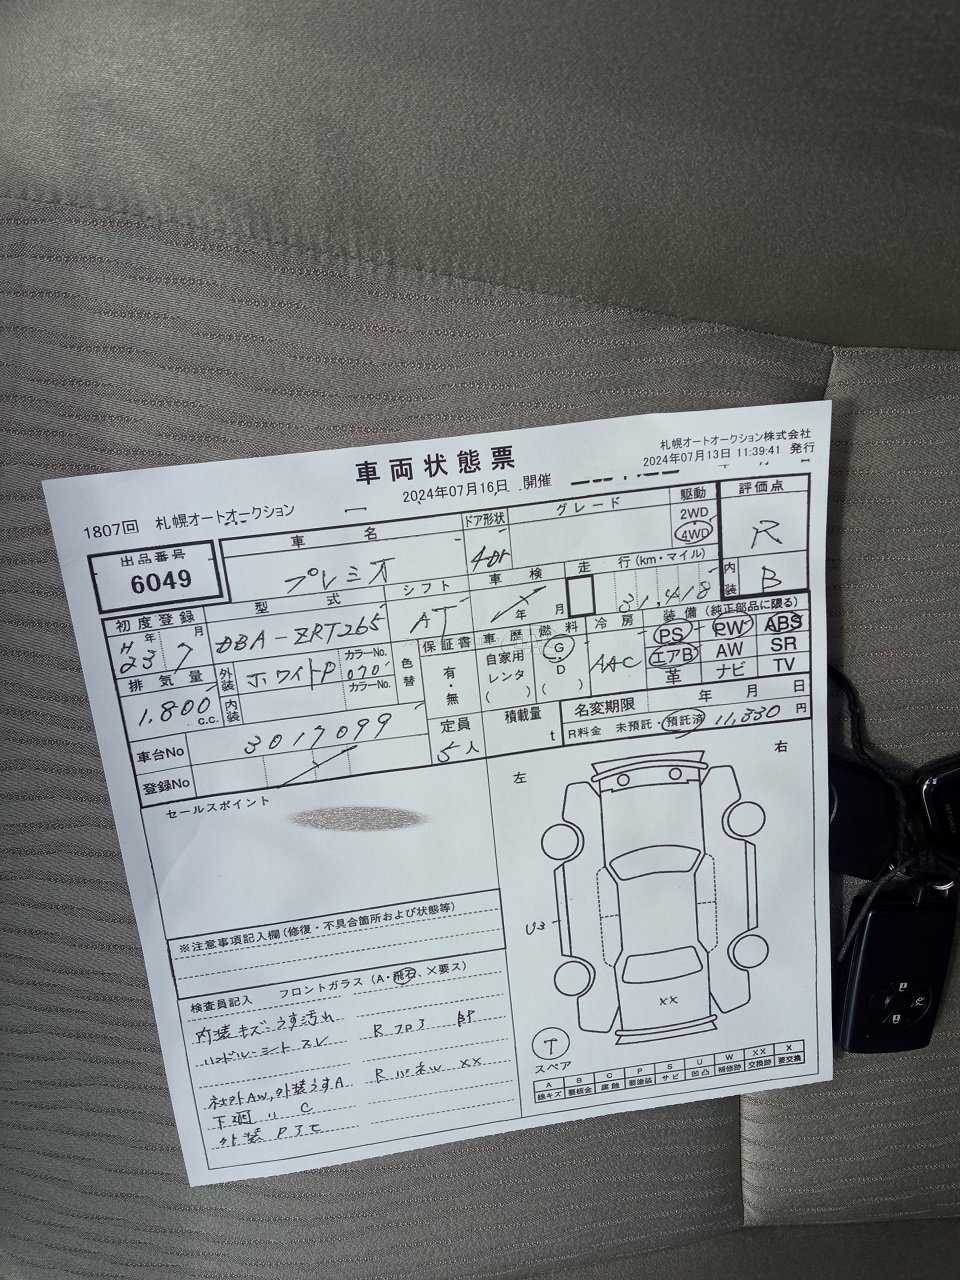 札幌オートオークション株式会社
車両状態票
2024年07月13日 11:39:41 発行
1807回 札幌オートオークション 2024年07月16日 開催
出品番号
6049
車名
プレミオ
ドア形状
4DR
グレード
駆動
2WD
4WD
評価点
R
内装
B
初度登録
年 月
H 23 7
型式
DBA-ZRT265
シフト
AT
車検
年 月
走行(km・マイル)
31,418
排気量
1.800 c.c.
外装
ホワイトP
カラーNo.
070
内装
カラーNo.
色替
保証書
有・無
車歴
自家用
レンタ
( )
燃料
G
D
( )
冷房
AAC
装備(純正部品に限る)
PS PW ABS
エアB AW SR
革 ナビ TV
車台No
3017099
登録No
定員
5人
積載量
t
名変期限 年 月 日
R料金 未預託・預託済 11,330 円
セールスポイント
左 右
U3
XX
T
スペア
※注意事項記入欄(修復・不具合箇所および状態等)
検査員記入 フロントガラス(A・飛石、×要ス)
内装キズ、うす汚れ
ハンドル・シートスレ
社外AW,外装うすA
下廻 〃 C
R パネル XX
A B C P S U W XX X
線キズ 要板金 腐蝕 要塗装 サビ 凹凸 補修跡 交換跡 要交換